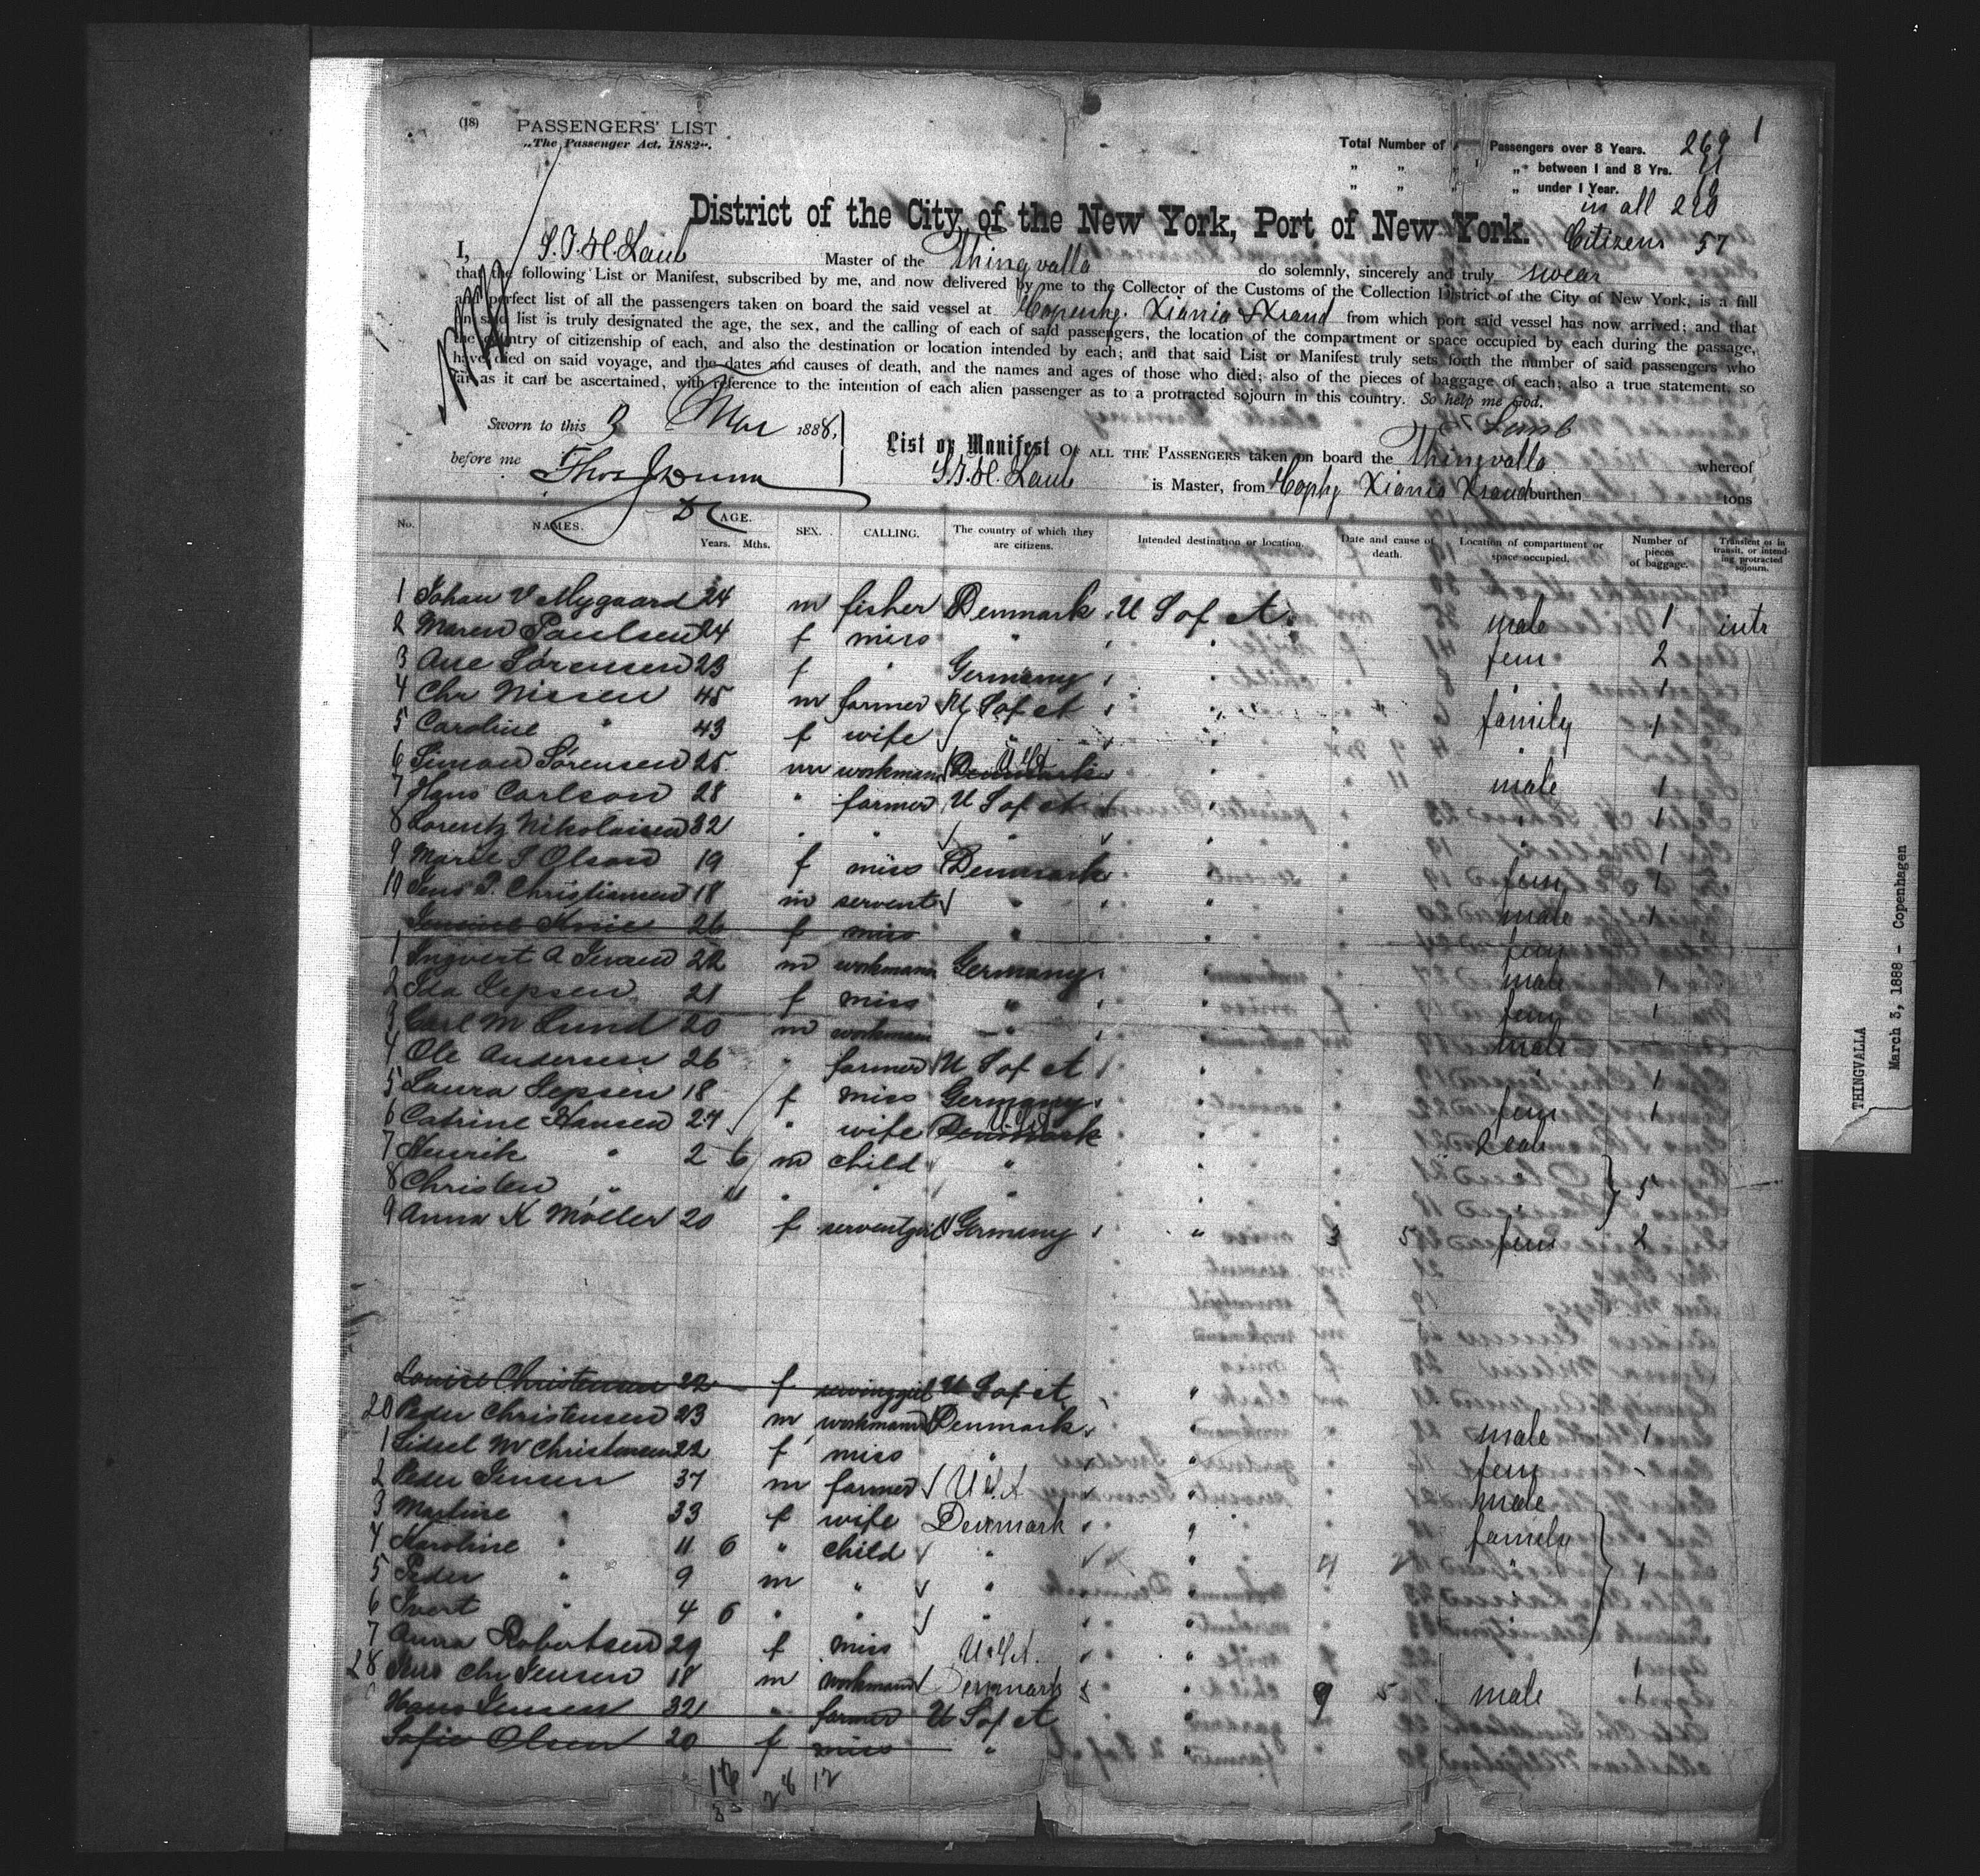 (18) PASSENGERS' LIST
„The Passenger Act, 1882“.
Total Number of Passengers over 8 Years. 269
„ „ „ between 1 and 8 Yrs.
„ „ „ under 1 Year.
in all
1
Citizens 57
District of the City of the New York, Port of New York.
I, S.T.H. Laub Master of the Thingvalla do solemnly, sincerely and truly swear
that the following List or Manifest, subscribed by me, and now delivered by me to the Collector of the Customs of the Collection District of the City of New York, is a full
and perfect list of all the passengers taken on board the said vessel at Kopenhg. Xiania & Xsand from which port said vessel has now arrived; and that
on said list is truly designated the age, the sex, and the calling of each of said passengers, the location of the compartment or space occupied by each during the passage,
the country of citizenship of each, and also the destination or location intended by each; and that said List or Manifest truly sets forth the number of said passengers who
have died on said voyage, and the dates and causes of death, and the names and ages of those who died; also of the pieces of baggage of each; also a true statement, so
far as it can be ascertained, with reference to the intention of each alien passenger as to a protracted sojourn in this country. So help me God.
Sworn to this 3 Mar 1888,
Laub
before me Thos J Dunn
DC
List or Manifest OF ALL THE PASSENGERS taken on board the Thingvalla whereof
S.T.H. Laub is Master, from Koph Xiania Xsand burthen tons
No. NAMES. AGE. Years. Mths. SEX. CALLING. The country of which they are citizens. Intended destination or location. Date and cause of death. Location of compartment or space occupied. Number of pieces of baggage. Transient or in transit, or intending protracted sojourn.
1 Johan V Nygaard 24 m fisher Denmark U S of A. male 1 intr
2 Maren Paulsen 24 f miss " " fem 2
3 Ane Sörensen 23 f " Germany " " 1
4 Chr Nissen 45 m farmer U S of A " family
5 Caroline " 43 f wife " " 1
6 Simon Sörensen 25 m workman Denmark USA " male 1
7 Hans Carlson 28 " farmer U S of A " 1
8 Lorentz Nikolaisen 32 " " " " 1
9 Marie S Olson 19 f miss Denmark " fem 1
10 Jens P. Christiansen 18 m servent " " male 1
26 f miss " " fem
1 Ingvert A Jensen 22 m workman Germany " male 1
2 Ida Jepsen 21 f miss " " fem 1
3 Carl M Lund 20 m workman " " male
4 Ole Andersen 26 " farmer U S of A " 1
5 Laura Jepsen 18 f miss Germany " fem 1
6 Catrine Hansen 27 " wife Denmark USA "
7 Henrik " 2 6 m child " "
8 Christen " 11 " " " " 5
9 Anna K Möller 20 f serventgirl Germany " 3 5 fem 2
Louise Christensen 22 f U S of A "
20 Peder Christensen 23 m workman Denmark " male 1
1 Sidsel M Christensen 22 f miss " " fem
2 Peder Jensen 37 m farmer USA " male
3 Martine " 33 f wife Denmark " family
4 Karoline " 11 6 " child " " 4
5 Peder " 9 m " " " 1
6 Ivert " 4 6 " " " "
7 Anna Robertsen 29 f miss USA. " 1
28 Jens Chr Jensen 18 m workman Denmark " 9 5 male 1
Hans Jensen 32 " farmer U S of A
Sofie Olsen 20 f miss "
28 12
THINGVALLA
March 3, 1888 - Copenhagen